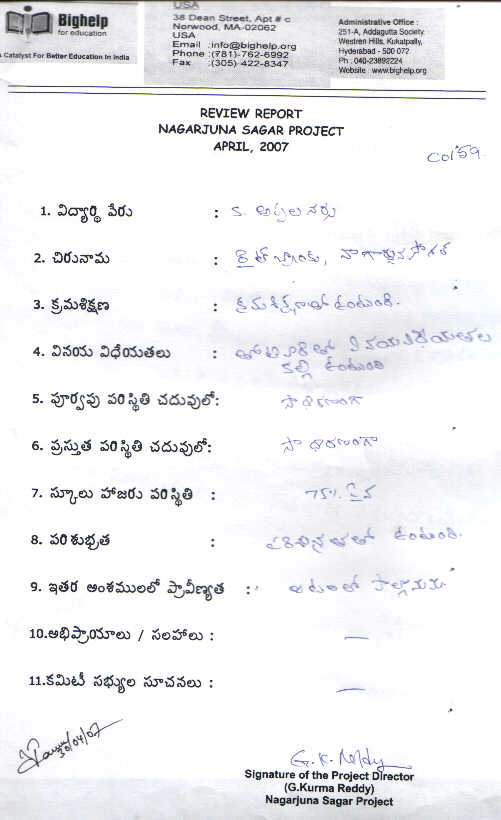 Bighelp
for education
A Catalyst For Better Education In India
USA
38 Dean Street, Apt # c
Norwood, MA-02062
USA
Email :info@bighelp.org
Phone :(781)-762-6992
Fax :(305)-422-8347
Administrative Office :
251-A, Addagutta Society,
Westren Hills, Kukatpally,
Hyderabad - 500 072
Ph : 040-23892224
Website www.bighelp.org
REVIEW REPORT
NAGARJUNA SAGAR PROJECT
APRIL, 2007
Col 59
1. విద్యార్థి పేరు : క. అప్పల నర్సు
2. చిరునామ : రైట్ బ్యాంకు, నాగార్జున సాగర్
3. క్రమశిక్షణ : క్రమశిక్షణతో ఉంటుంది.
4. వినయ విధేయతలు : తోటివారితో వినయవిధేయతలు
కల్గి ఉంటుంది
5. పూర్వపు పరిస్థితి చదువులో: సాధారణంగా
6. ప్రస్తుత పరిస్థితి చదువులో: సాధారణంగా
7. స్కూలు హాజరు పరిస్థితి : 75% పైన
8. పరిశుభ్రత : పరిశుభ్రతతో ఉంటుంది.
9. ఇతర అంశములలో ప్రావీణ్యత : ఆటలలో పాల్గొనును.
10.అభిప్రాయాలు / సలహాలు : —
11.కమిటీ సభ్యుల సూచనలు : —
30/04/07
G. K. Reddy
Signature of the Project Director
(G.Kurma Reddy)
Nagarjuna Sagar Project